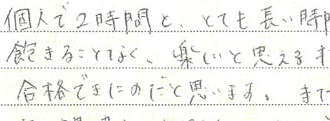 個人で2時間と、とても長い時
飽きることなく、楽しいと思えるす
合格できたのだと思います。また